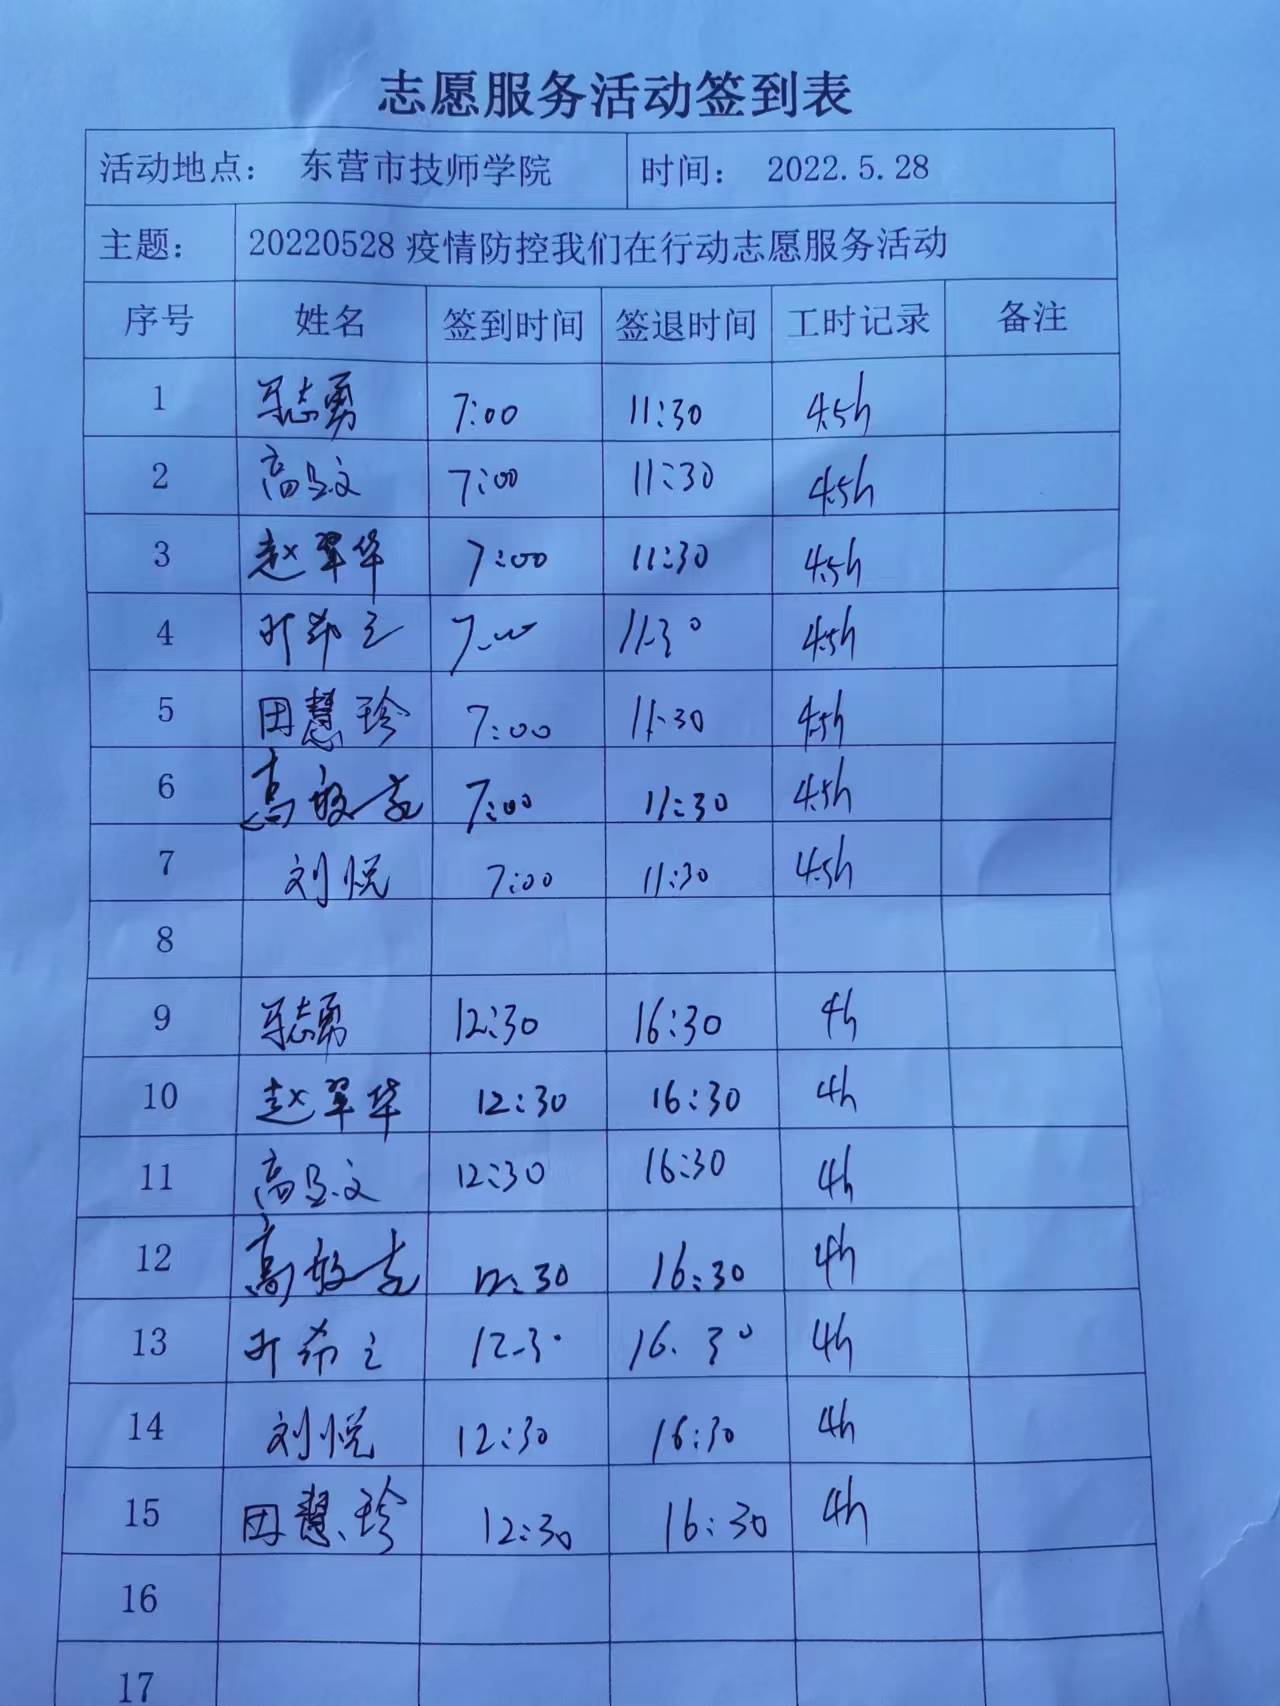 志愿服务活动签到表
活动地点： 东营市技师学院 时间： 2022.5.28
主题： 20220528疫情防控我们在行动志愿服务活动
序号 姓名 签到时间 签退时间 工时记录 备注
1 志勇 7:00 11:30 4.5h
2 高文 7:00 11:30 4.5h
3 赵翠华 7:00 11:30 4.5h
4 7:00 11:30 4.5h
5 田慧珍 7:00 11:30 4.5h
6 高 7:00 11:30 4.5h
7 刘悦 7:00 11:30 4.5h
8
9 志勇 12:30 16:30 4h
10 赵翠华 12:30 16:30 4h
11 高文 12:30 16:30 4h
12 高 12:30 16:30 4h
13 12:30 16:30 4h
14 刘悦 12:30 16:30 4h
15 田慧珍 12:30 16:30 4h
16
17